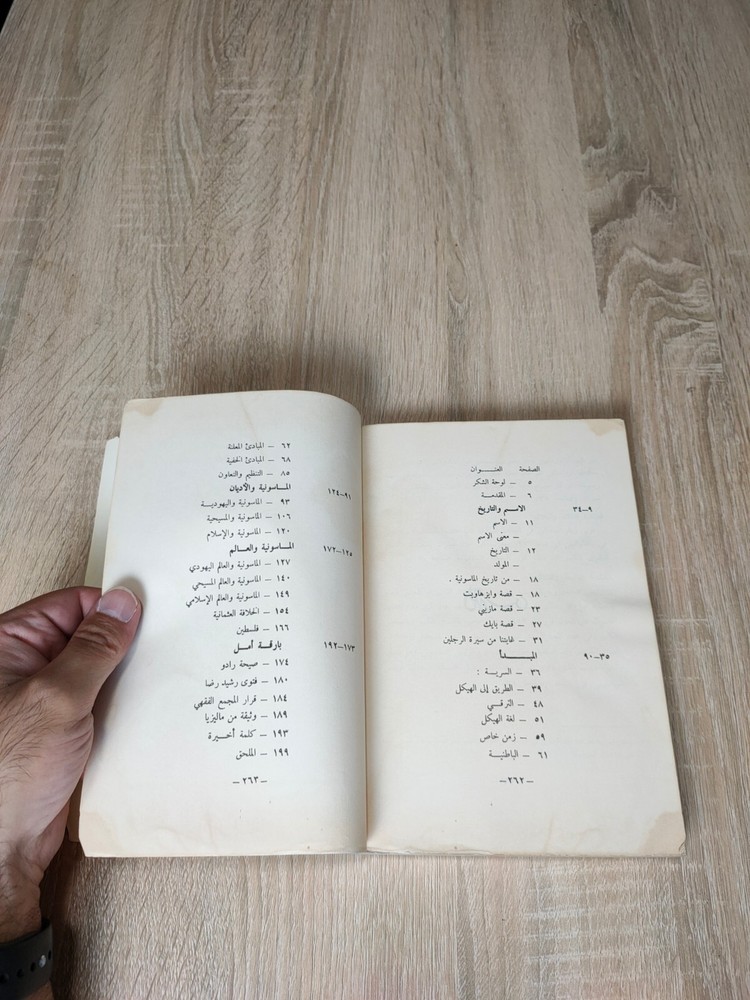 الصفحة العنـــوان
٥ – لوحة الشكر
٦ – المقدمـة
الاسم والتاريخ ٩–٣٤
١١ – الاسم
– معنى الاسم
١٢ – التاريخ
– المولد
١٨ – من تاريخ الماسونية .
١٨ – قصة وايزهاوبت
٢٣ – قصة مازيني
٢٧ – قصة بايك
٣١ – غايتنا من سيرة الرجلين
المبـــدأ ٣٥–٩٠
٣٦ – السريـة :
٣٩ – الطريق إلى الهيكل
٤٨ – الترقـي
٥١ – لغة الهيكل
٥٩ – زمن خاص
٦١ – الباطنيـة
–٢٦٢–
٦٢ – المبادئ المعلنة
٦٨ – المبادئ الخفية
٨٥ – التنظيم والتعاون
المـاسونية والأديان ٩١–١٢٤
٩٣ – الماسونية واليهوديـة
١٠٦ – الماسونية والمسيحية
١٢٠ – الماسونية والإسلام
المـاسونية والعـالم ١٢٥–١٧٢
١٢٧ – الماسونية والعالم اليهودي
١٤٠ – الماسونية والعالم المسيحي
١٤٩ – الماسونية والعالم الإسلامي
١٥٤ – الخلافة العثمانية
١٦٦ – فلسطين
بارقـة أمـل ١٧٣–١٩٢
١٧٤ – صيحة رادو
١٨٠ – فتوى رشيد رضا
١٨٤ – قرار المجمع الفقهي
١٨٩ – وثيقة من ماليزيا
١٩٣ – كلمة أخيـرة
١٩٩ – الملحق
–٢٦٣–